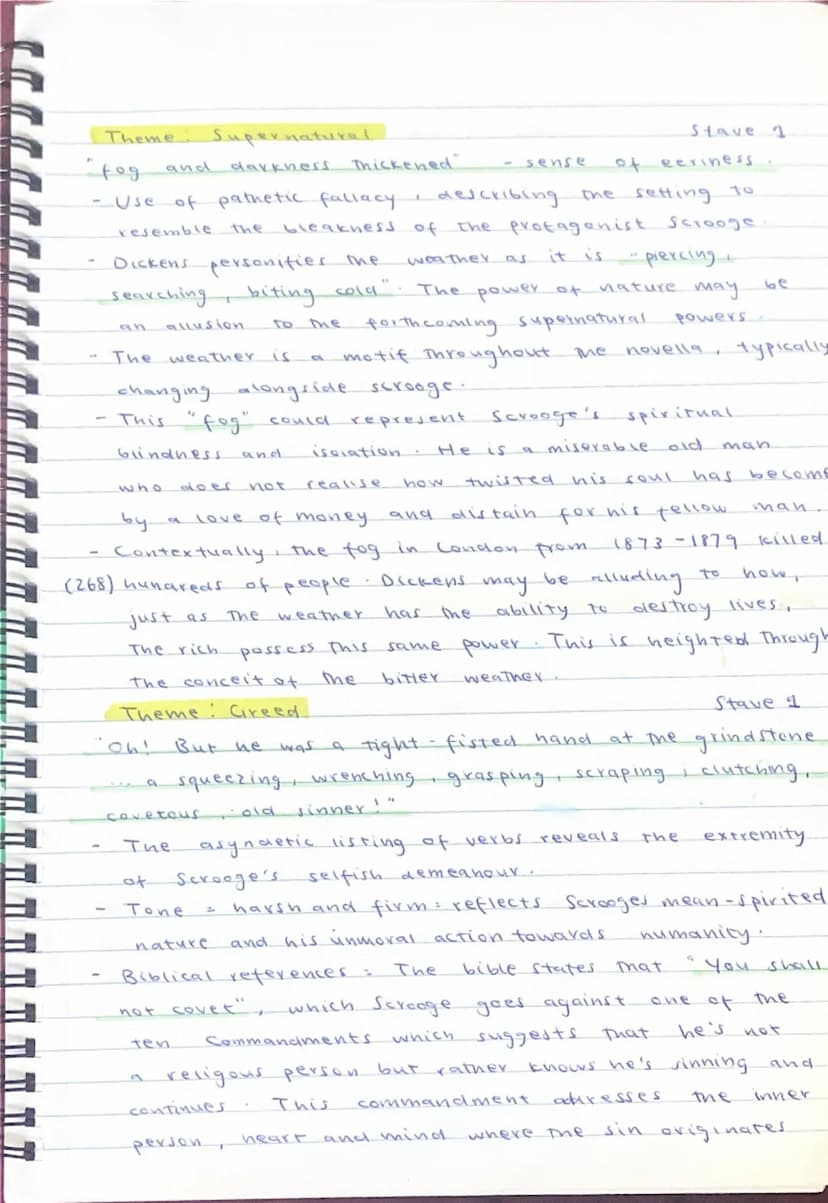 Theme: Supernatural Stave 1
"fog and darkness thickened" - sense of eeriness.
- Use of pathetic fallacy, describing the setting to
resemble the bleakness of the protagonist Scrooge.
- Dickens personifies the weather as it is "piercing,
searching, biting cold". The power of nature may be
an allusion to the forthcoming supernatural powers.
- The weather is a motif throughout the novella, typically
changing alongside scrooge.
- This "fog" could represent Scrooge's spiritual
blindness and isolation. He is a miserable old man
who does not realise how twisted his soul has become
by a love of money and distain for his fellow man.
- Contextually, the fog in London from 1873-1879 killed
(268) hundreds of people. Dickens may be alluding to how,
just as the weather has the ability to destroy lives,
the rich possess this same power. This is heighted through
the conceit of the bitter weather.
Theme: Greed Stave 1
"Oh! But he was a tight-fisted hand at the grindstone
... a squeezing, wrenching, grasping, scraping, clutching,
covetous, old sinner!"
- The asyndetic listing of verbs reveals the extremity
of Scrooge's selfish demeanour.
- Tone = harsh and firm: reflects Scrooges mean-spirited
nature and his unmoral action towards humanity.
- Biblical references = The bible states that "You shall
not covet", which Scrooge goes against one of the
ten Commandments which suggests that he's not
a religous person but rather knows he's sinning and
continues. This commandment addresses the inner
person, heart and mind where the sin originates